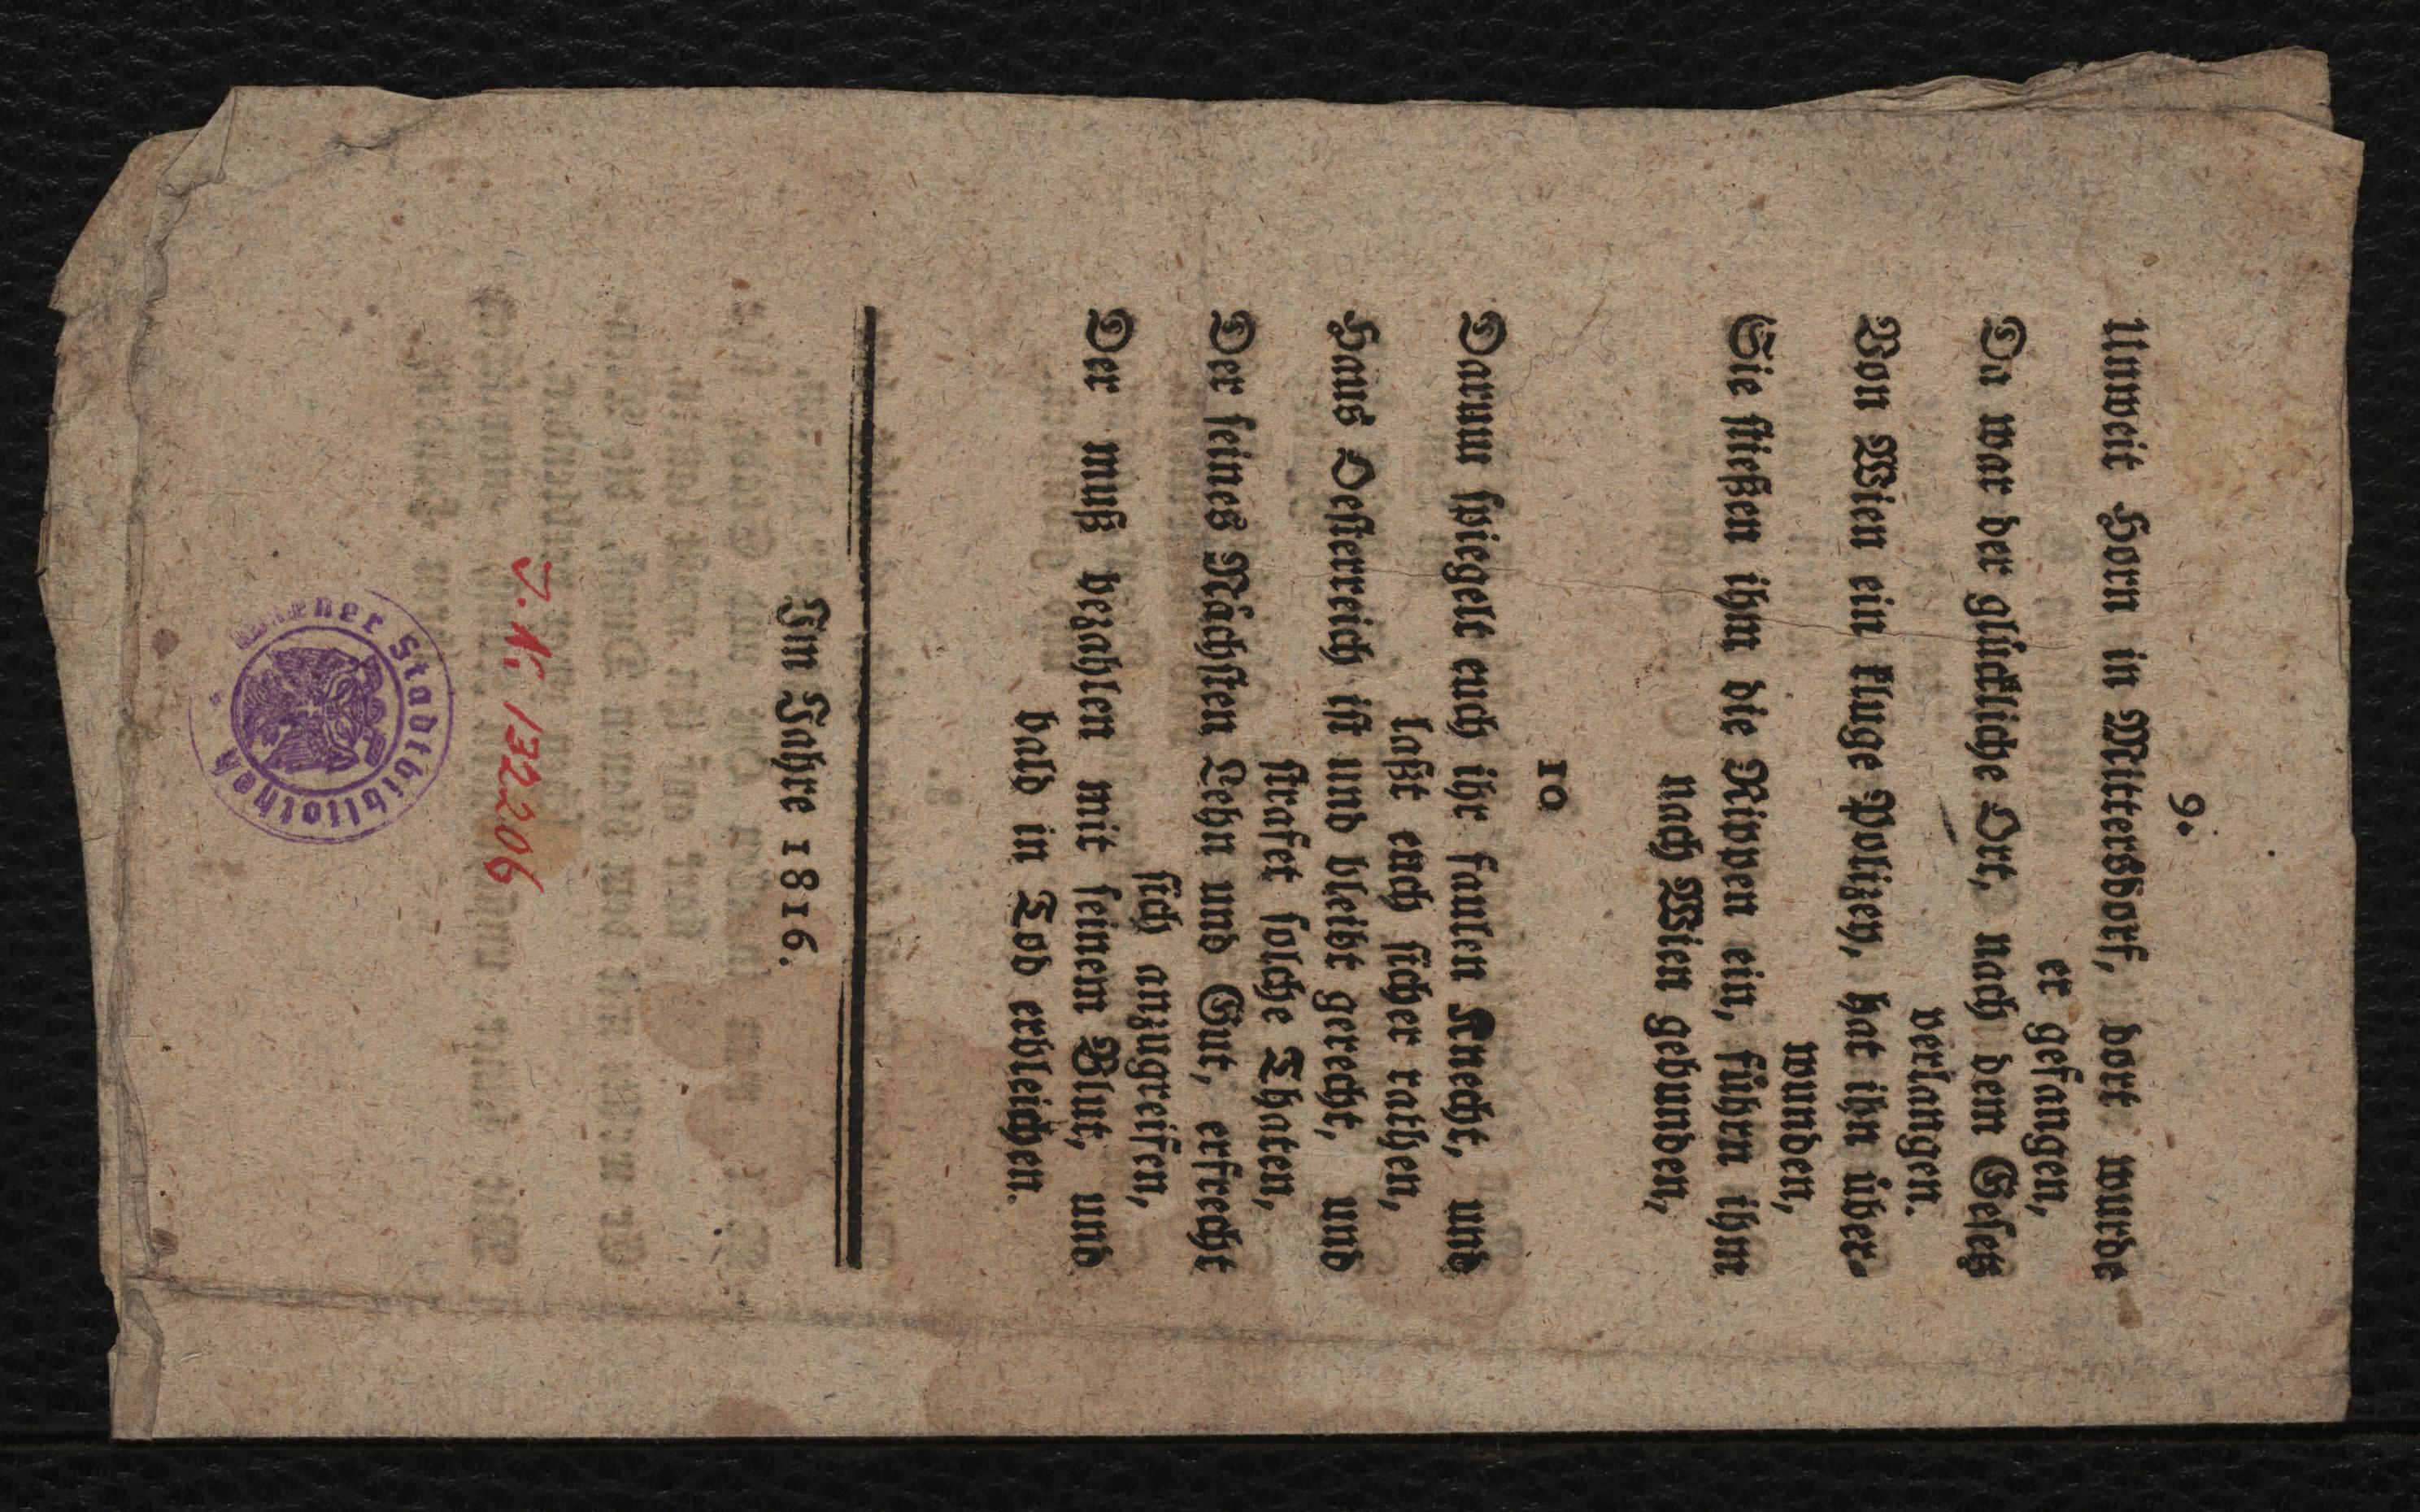 9.
Unweit Horn in Mittersdorf, dort wurde
er gefangen,
Da war der glückliche Ort, nach dem Gesetz
verlangen.
Von Wien ein kluge Polizey, hat ihn über-
wunden,
Sie stießen ihm die Rippen ein, führn ihm
nach Wien gebunden,
10
Darum spiegelt euch ihr faulen Knecht, und
laßt euch sicher rathen,
Haus Oesterreich ist und bleibt gerecht, und
strafet solche Thaten,
Der seines Nächsten Lehn und Gut, erfrecht
sich anzugreifen,
Der muß bezahlen mit seinem Blut, und
bald in Tod erbleichen.
Im Jahre 1816.
J. N. 132206
Wiener Stadtbibliothek